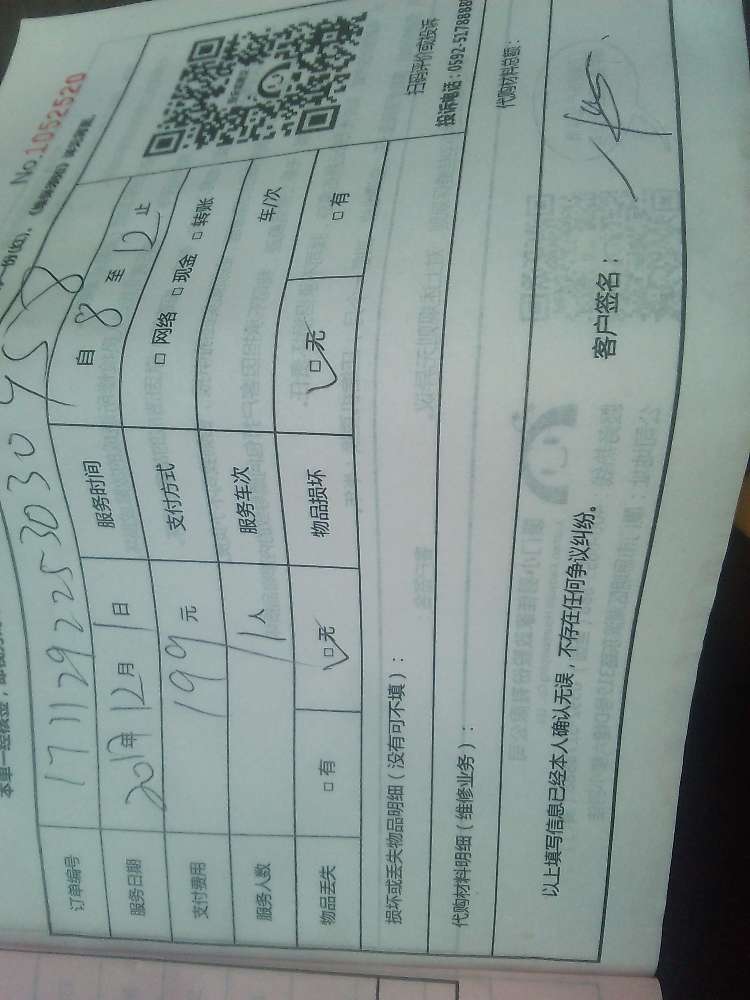 No.1052520
订单编号 17112922530304558
服务日期 2017年12月1日 服务时间 自8至12止
支付费用 199元 支付方式 □网络 □现金 □转账
服务人数 1人 服务车次 车/次
物品丢失 □有 □无 物品损坏 □无 □有
损坏或丢失物品明细（没有可不填）：
扫码评价或投诉
投诉电话：0592-5178888
代购材料明细（维修业务）：
代购材料总额：
以上填写信息已经本人确认无误，不存在任何争议纠纷。
客户签名：